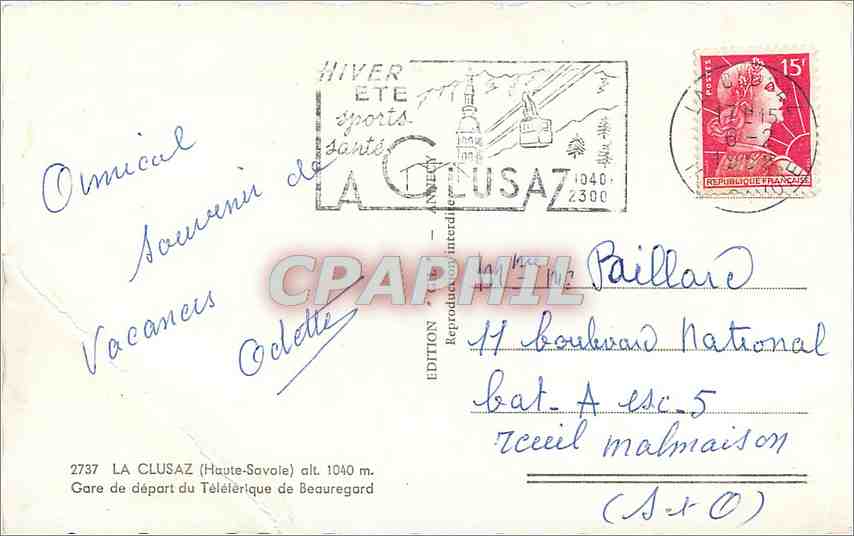 HIVER
ETE
sports
santé
LA CLUSAZ
1040
2300
POSTES
15F
REPUBLIQUE FRANÇAISE
Amical
souvenir de
vacances
Odette
EDITION
ANNECY
Reproduction interdite
CPAPHIL
Paillard
11 boulevard National
bat. A esc. 5
rceuil malmaison
(S et O)
2737 LA CLUSAZ (Haute-Savoie) alt. 1040 m.
Gare de départ du Téléférique de Beauregard